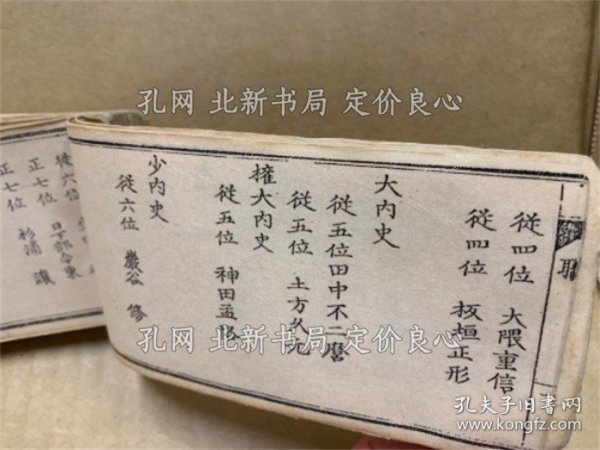 從四位 大隈重信
從四位 板垣正形
大内史
從五位 田中不二麿
從五位 土方久元
權大内史
從五位 神田孟恪
少内史
從六位 巖谷 修
從六位 日下部令東
正七位 杉浦 讓
正七位
職
孔网 北新书局 定价良心
孔网 北新书局 定价良心
孔夫子旧书网
www.kongfz.com